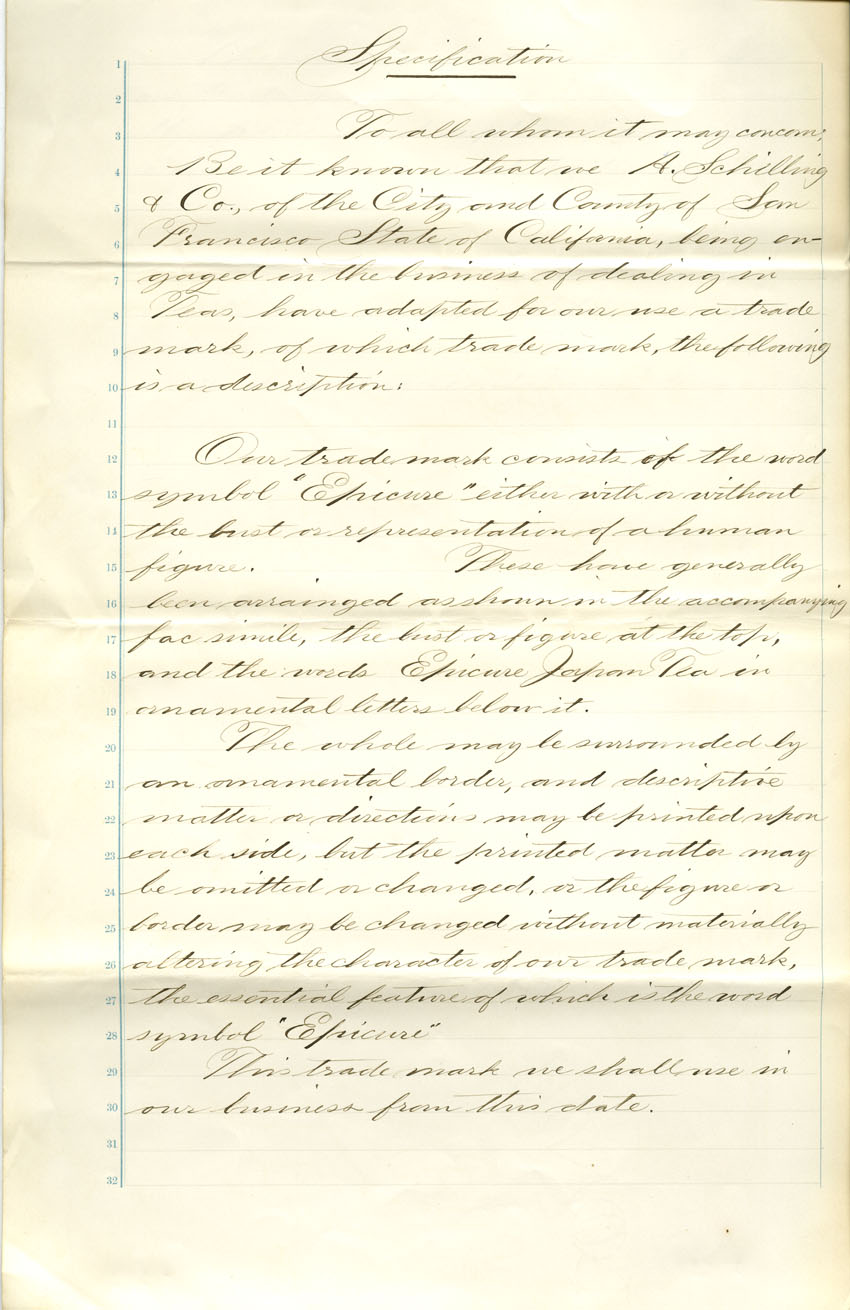 Specification
1
2
3 To all whom it may concern;
4 Be it known that we A. Schilling
5 & Co., of the City and County of San
6 Francisco State of California, being en-
7 gaged in the business of dealing in
8 Teas, have adapted for our use a trade
9 mark, of which trade mark, the following
10 is a description:
11
12 Our trade mark consists of the word
13 symbol "Epicure" either with or without
14 the bust or representation of a human
15 figure. These have generally
16 been arrainged as shown in the accompanying
17 fac simile, the bust or figure at the top,
18 and the words Epicure Japan Tea in
19 ornamental letters below it.
20 The whole may be surrounded by
21 an ornamental border, and descriptive
22 matter or directions may be printed upon
23 each side, but the printed matter may
24 be omitted or changed, or the figure or
25 border may be changed without materially
26 altering the character of our trade mark,
27 the essential feature of which is the word
28 symbol "Epicure"
29 This trade mark we shall use in
30 our business from this date.
31
32